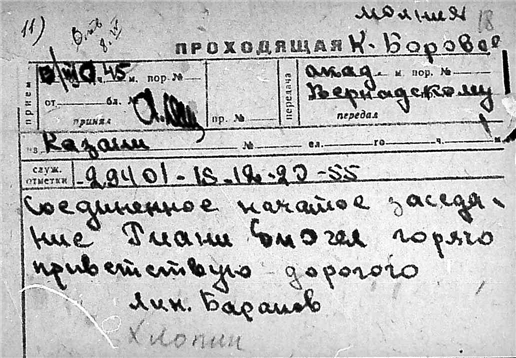 молния 18
11) Отв 8.III
ПРОХОДЯЩАЯ К. Боровое
45 м. пор. № ч. м. пор. № акад.
прием от бл. № передача Вернадскому
принял пр. № передал
из Казани № сл. го ч. м.
служ. отметки 29401-15-12-20-55
Соединенное начатое заседа
ние Гиани Биогел горячо
приветствую дорогого
Лин. Баранов
Хлопин